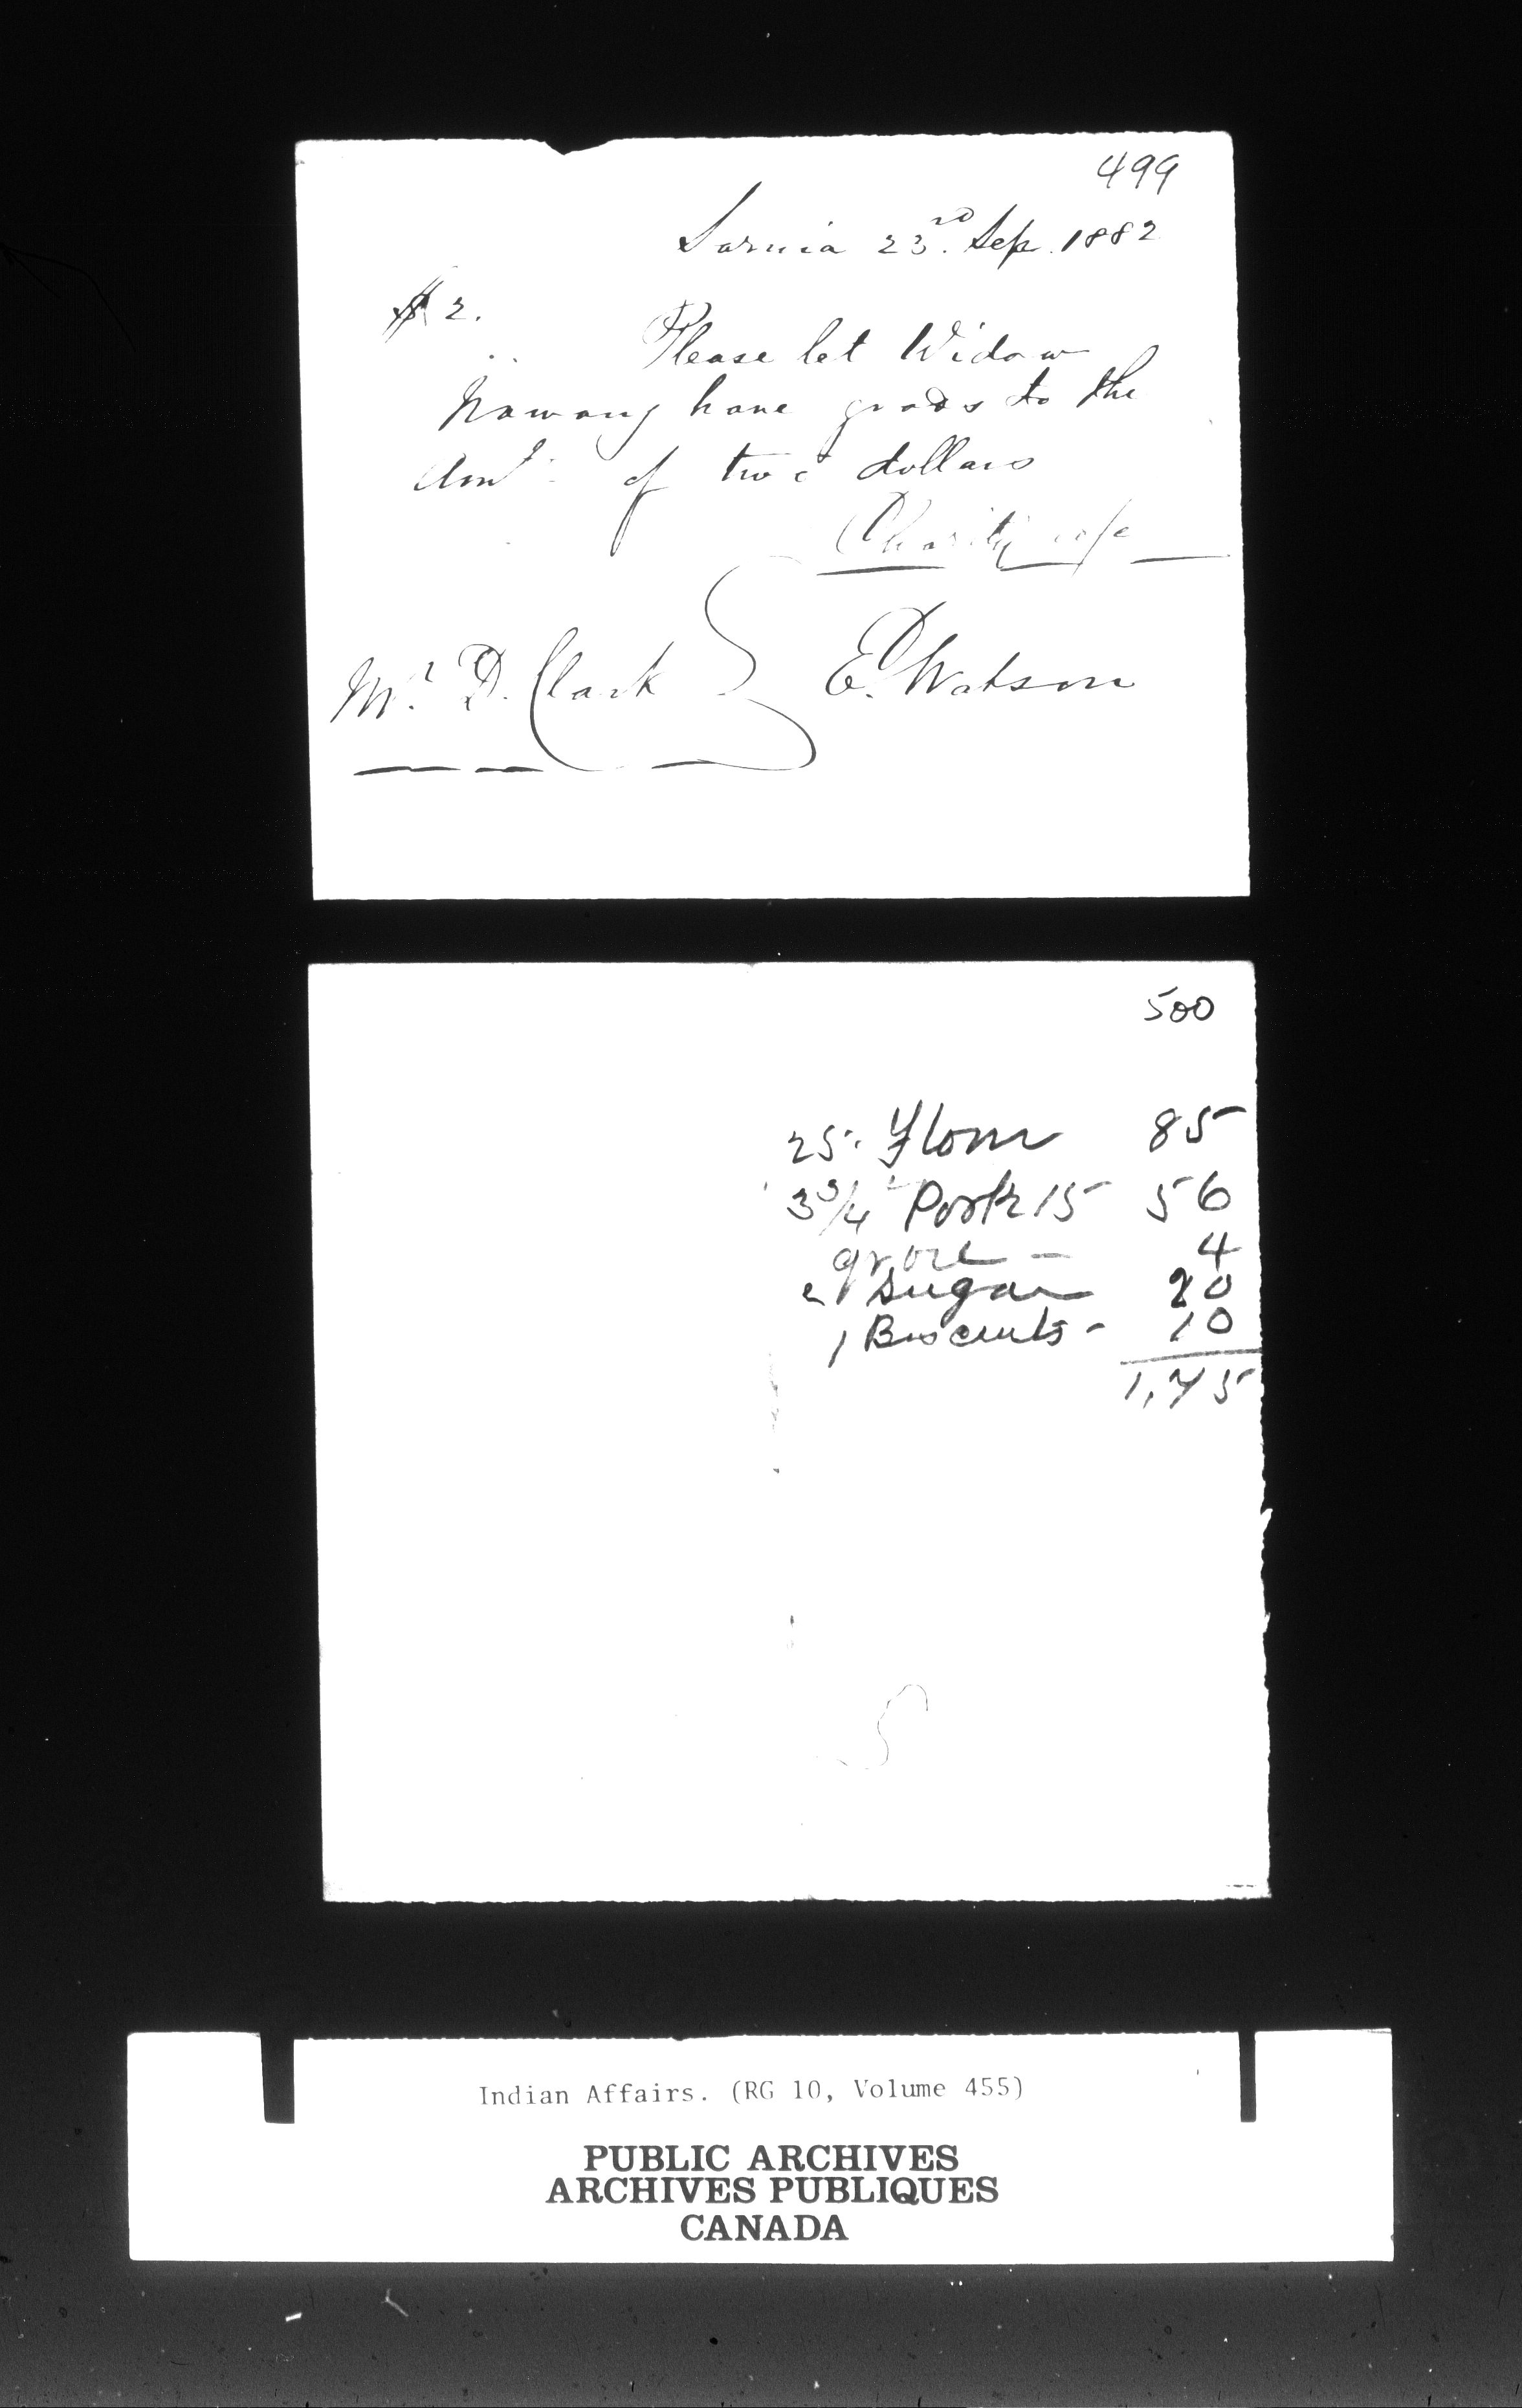 499
Sarnia 23rd. Sep. 1882
$2.
Please let Widow
Nawang have goods to the
Amt. of two dollars
Charity a/c
Mr. D. Clark E. Watson
500
25. Flour 85
3 3/4 Pork 15 56
4
2 Sugar 20
1 Biscuits - 10
1,75
Indian Affairs. (RG 10, Volume 455)
PUBLIC ARCHIVES
ARCHIVES PUBLIQUES
CANADA